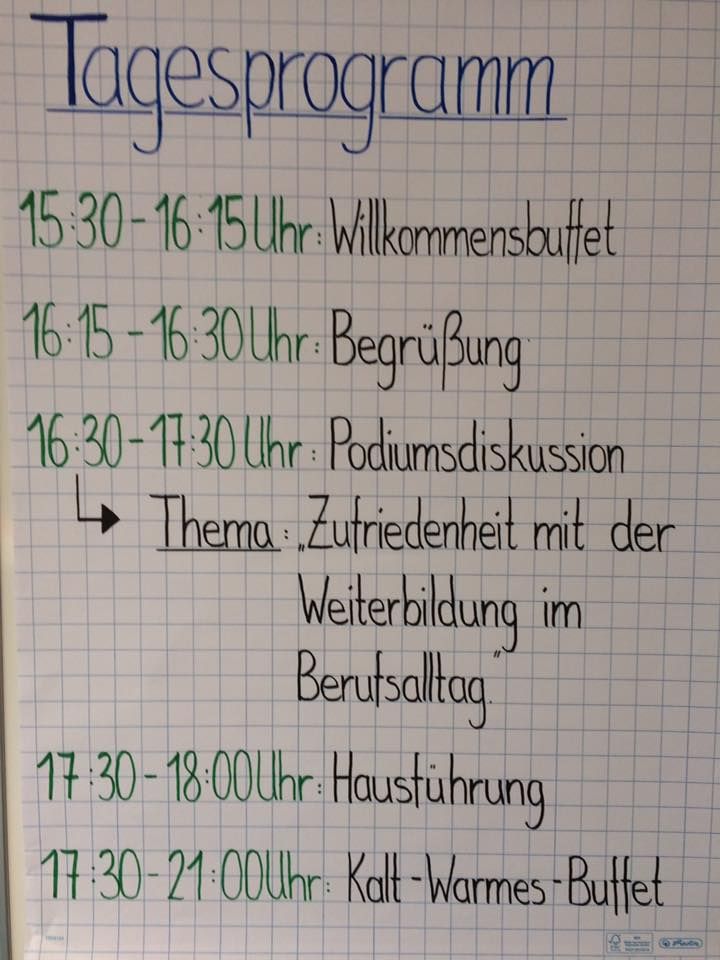 Tagesprogramm
15:30-16:15 Uhr: Willkommensbuffet
16:15-16:30 Uhr: Begrüßung
16:30-17:30 Uhr: Podiumsdiskussion
Thema: „Zufriedenheit mit der
Weiterbildung im
Berufsalltag."
17:30-18:00 Uhr: Hausführung
17:30-21:00 Uhr: Kalt-Warmes-Buffet